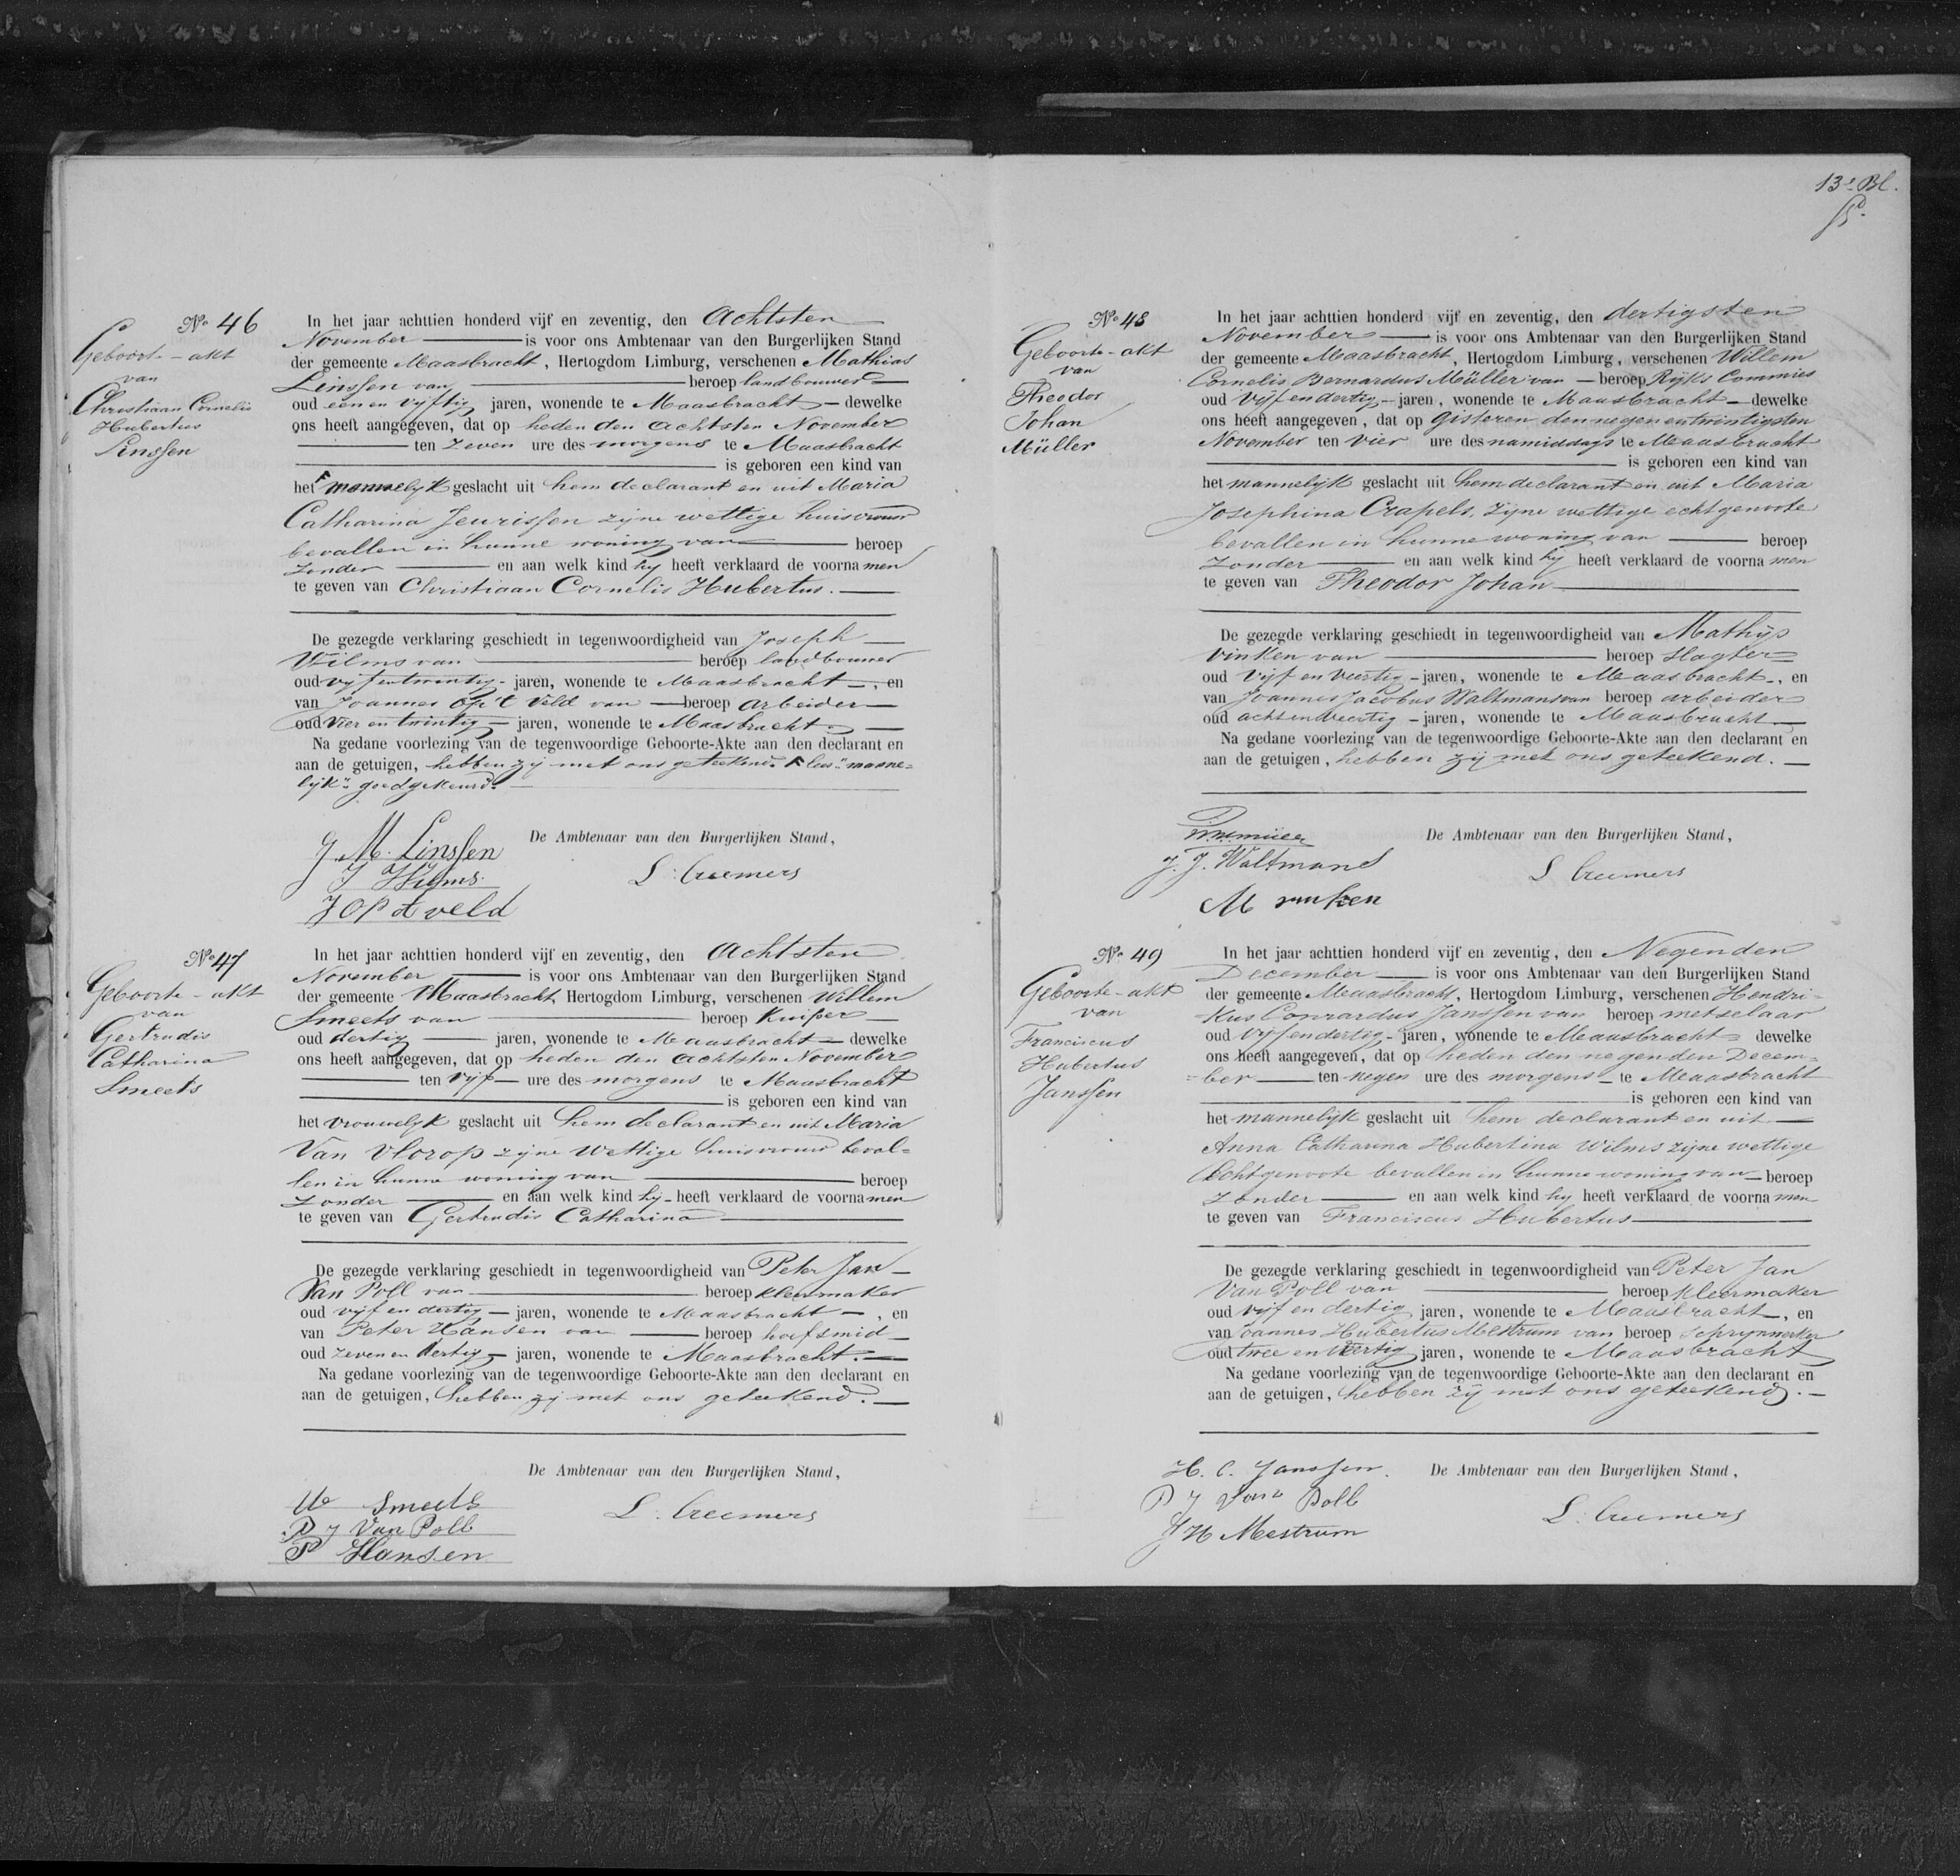 No 46
Geboorte-akt
van
Christiaan Cornelis
Hubertus
Linssen
In het jaar achttien honderd vijf en zeventig, den Achtsten
November is voor ons Ambtenaar van den Burgerlijken Stand
der gemeente Maasbracht, Hertogdom Limburg, verschenen Mathias
Linssen van beroep landbouwer
oud een en vyftig jaren, wonende te Maasbracht dewelke
ons heeft aangegeven, dat op heden den achtsten November
ten zeven ure des morgens te Maasbracht
is geboren een kind van
het geslacht uit hem declarant en uit Maria
Catharina Jeurissen zijne wettige huisvrouw
bevallen in hunne woning van beroep
zonder en aan welk kind hy heeft verklaard de voorna men
te geven van Christiaan Cornelis Hubertus.
De gezegde verklaring geschiedt in tegenwoordigheid van Joseph
Wilms van beroep landbouwer
oud vyf entwintig jaren, wonende te Maasbracht, en
van Joannes Op 't Veld van beroep arbeider
oud vier en twintig jaren, wonende te Maasbracht.
Na gedane voorlezing van de tegenwoordige Geboorte-Akte aan den declarant en
aan de getuigen, hebben zij met ons geteekend. lees "manne=
lijk" goedgekeurd.
De Ambtenaar van den Burgerlijken Stand,
J. M. Linssen
J Wilms
J Op t veld
L. Creemers
No 47
Geboorte-akt
van
Gertrudis
Catharina
Smeets
In het jaar achttien honderd vijf en zeventig, den Achtsten
November is voor ons Ambtenaar van den Burgerlijken Stand
der gemeente Maasbracht, Hertogdom Limburg, verschenen Willem
Smeets van beroep Kuiper
oud dertig jaren, wonende te Maasbracht dewelke
ons heeft aangegeven, dat op heden den achtsten November
ten vijf ure des morgens te Maasbracht
is geboren een kind van
het vrouwelyk geslacht uit hem declarant en uit Maria
Van Vlorop zijne wettige huisvrouw beval=
len in hunne woning van beroep
zonder en aan welk kind hy heeft verklaard de voorna men
te geven van Gertrudis Catharina
De gezegde verklaring geschiedt in tegenwoordigheid van Peter Jan
Van Poll van beroep kleermaker
oud vijf en dertig jaren, wonende te Maasbracht, en
van Peter Hansen van beroep hoefsmid
oud zeven en dertig jaren, wonende te Maasbracht.
Na gedane voorlezing van de tegenwoordige Geboorte-Akte aan den declarant en
aan de getuigen, hebben zij met ons geteekend.
De Ambtenaar van den Burgerlijken Stand,
W Smeets
P J Van Poll
P Hansen
L. Creemers
13e Bl.
No 48
Geboorte-akt
van
Theodor
Johan
Müller
In het jaar achttien honderd vijf en zeventig, den dertigsten
November is voor ons Ambtenaar van den Burgerlijken Stand
der gemeente Maasbracht, Hertogdom Limburg, verschenen Willem
Cornelis Bernardus Müller van beroep Ryks Commies
oud vyf en dertig jaren, wonende te Maasbracht dewelke
ons heeft aangegeven, dat op Gisteren den negen entwintigsten
November ten vier ure des namiddags te Maasbracht
is geboren een kind van
het mannelyk geslacht uit hem declarant en uit Maria
Josephina Crapels, zijne wettige echtgenoote
bevallen in hunne woning van beroep
zonder en aan welk kind hy heeft verklaard de voorna men
te geven van Theodor Johan
De gezegde verklaring geschiedt in tegenwoordigheid van Mathijs
Vinken van beroep slagter
oud vyf en veertig jaren, wonende te Maasbracht, en
van Joannes Jacobus Waltmans van beroep arbeider
oud achtenveertig jaren, wonende te Maasbracht
Na gedane voorlezing van de tegenwoordige Geboorte-Akte aan den declarant en
aan de getuigen, hebben zij met ons geteekend.
De Ambtenaar van den Burgerlijken Stand,
J. J. Waltmans
M vinken
L Creemers
No 49
Geboorte-akt
van
Franciscus
Hubertus
Janssen
In het jaar achttien honderd vijf en zeventig, den Negenden
December is voor ons Ambtenaar van den Burgerlijken Stand
der gemeente Maasbracht, Hertogdom Limburg, verschenen Hendri=
kus Conrardus Janssen van beroep metselaar
oud vyf en dertig jaren, wonende te Maasbracht dewelke
ons heeft aangegeven, dat op heden den negenden Decem=
=ber ten negen ure des morgens te Maasbracht
is geboren een kind van
het mannelijk geslacht uit hem declarant en uit
Anna Catharina Hubertina Wilms zijne wettige
Echtgenoote bevallen in hunne woning van beroep
zonder en aan welk kind hy heeft verklaard de voorna men
te geven van Franciscus Hubertus
De gezegde verklaring geschiedt in tegenwoordigheid van Peter Jan
Van Poll van beroep kleermaker
oud vijf en dertig jaren, wonende te Maasbracht, en
van Joannes Hubertus Mestrum van beroep schrynwerker
oud twee en jaren, wonende te Maasbracht
Na gedane voorlezing van de tegenwoordige Geboorte-Akte aan den declarant en
aan de getuigen, hebben zij met ons geteekend.
De Ambtenaar van den Burgerlijken Stand,
H. C. Janssen.
P J van Poll
J H Mestrum
L. Creemers